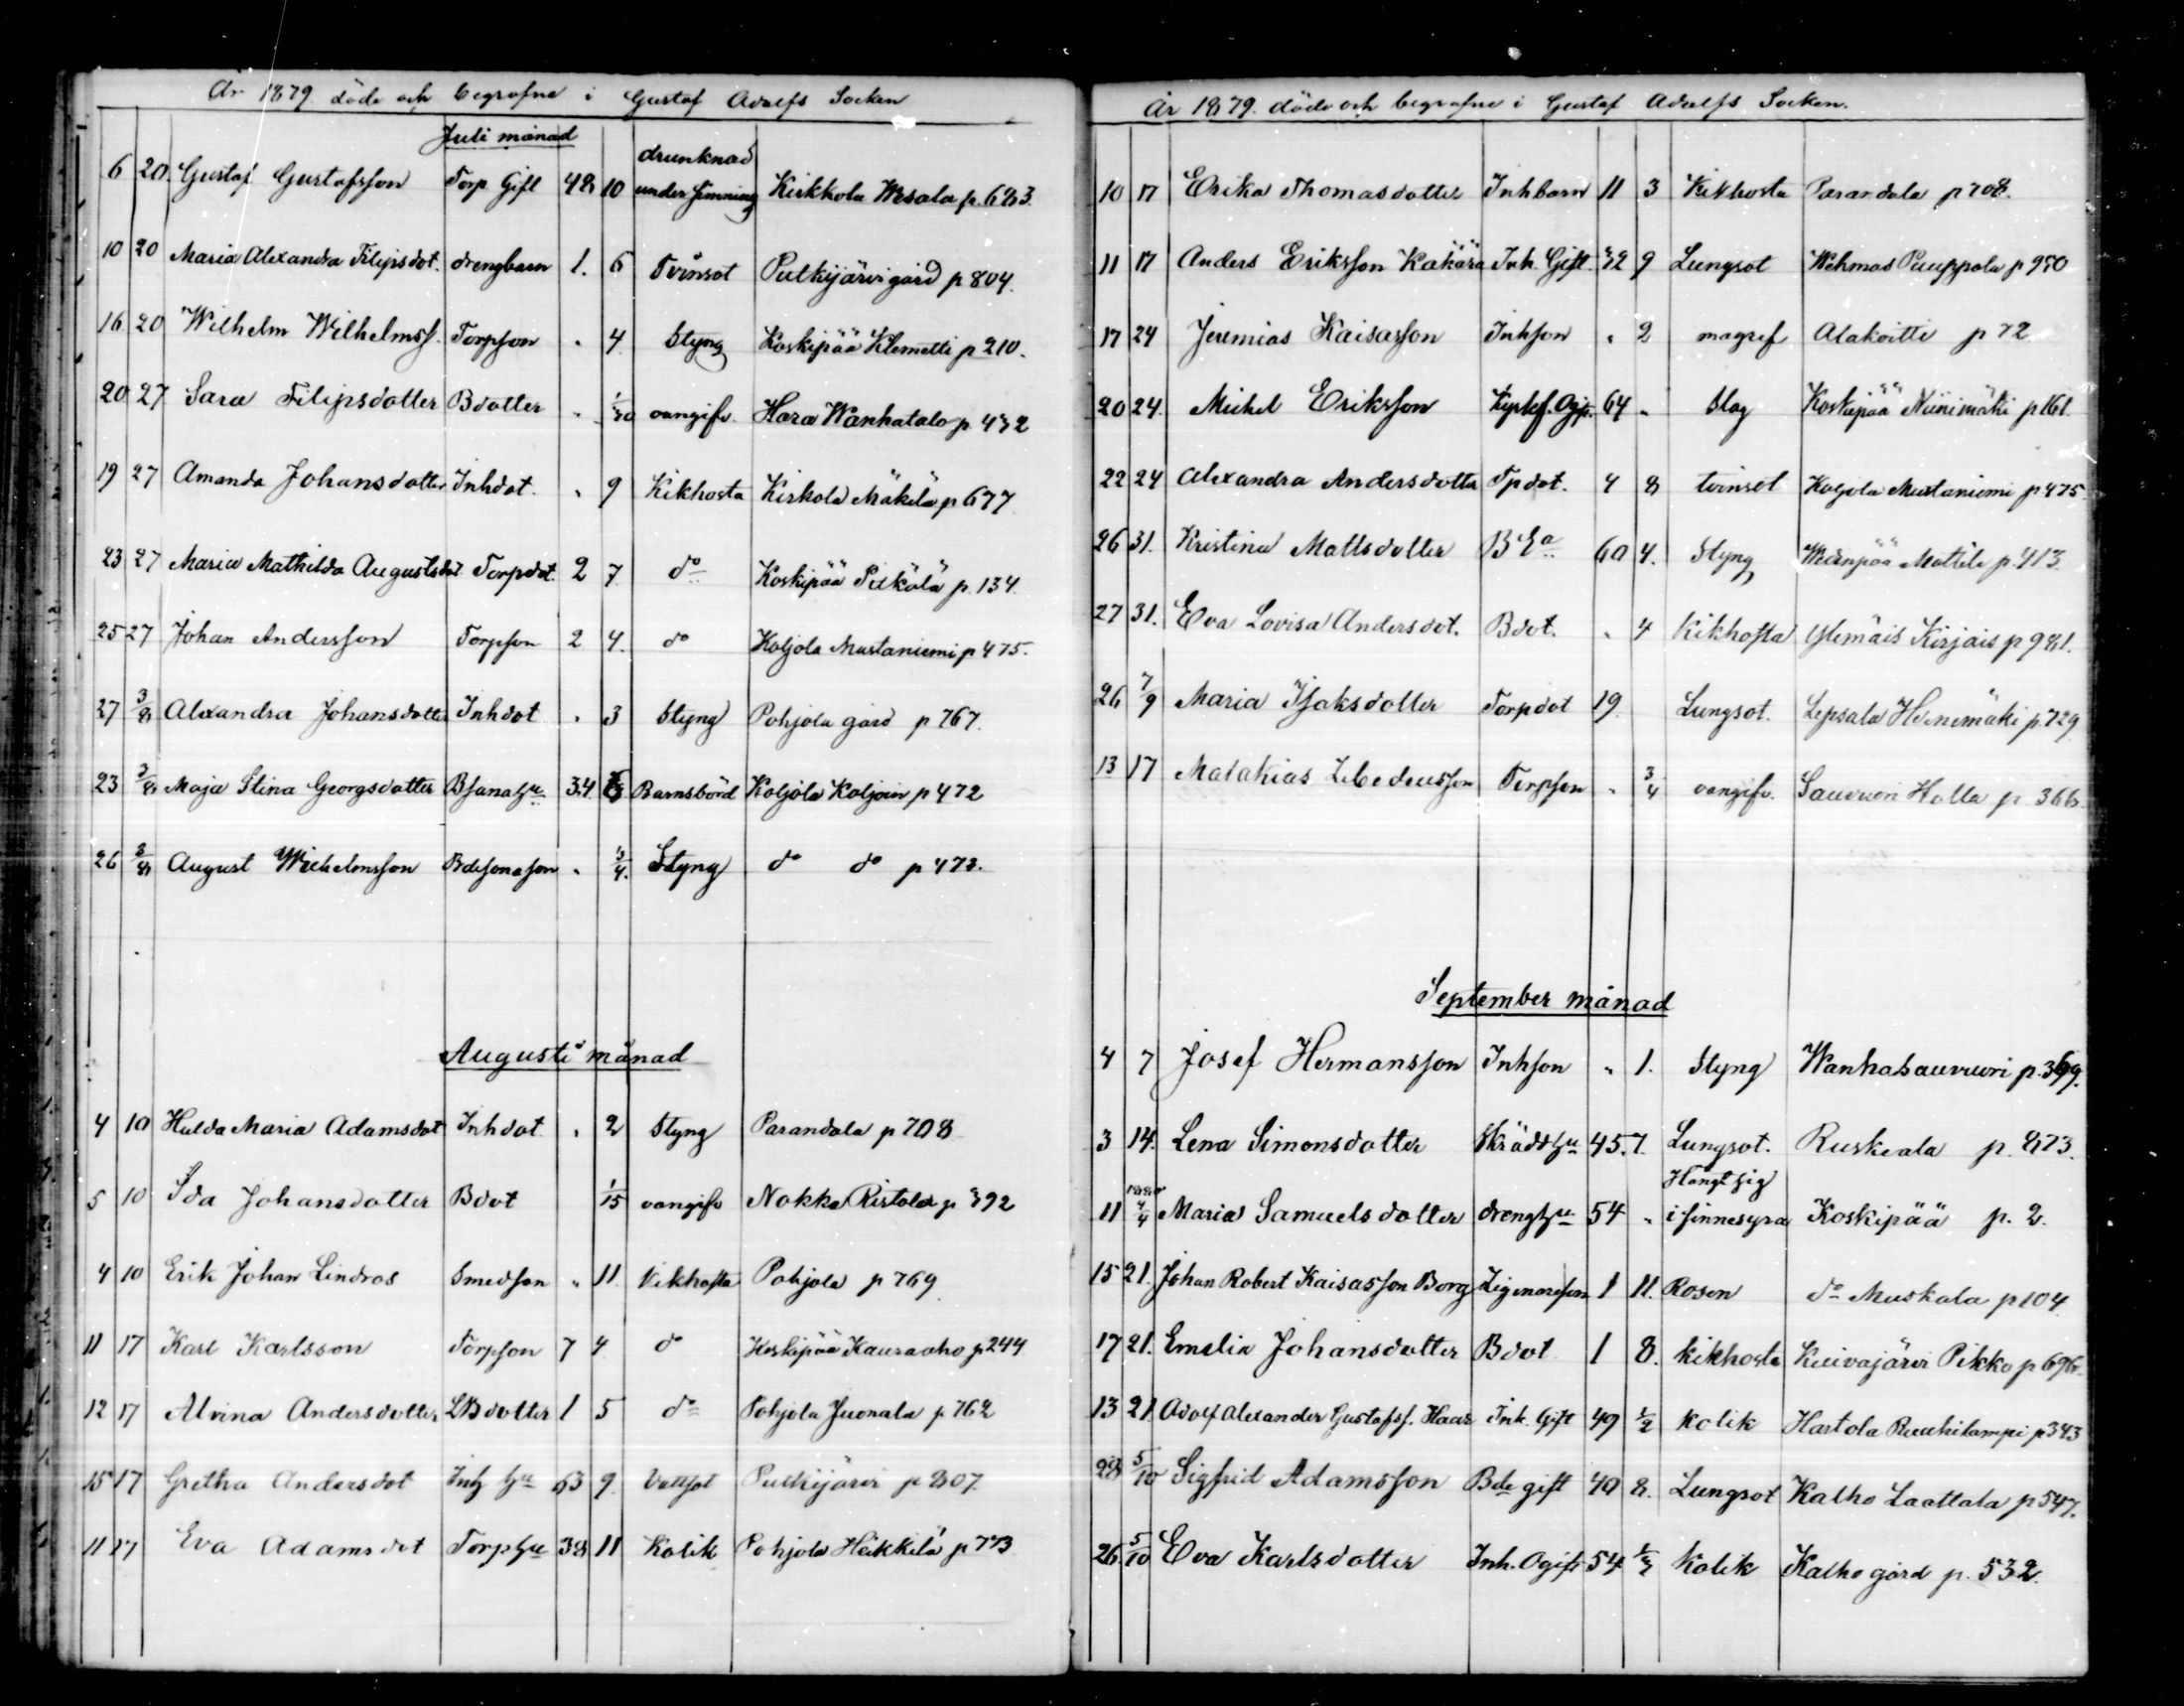 År 1879 döde och begrafne i Gustaf Adolfs Socken
Juli månad
6 20. Gustaf Gustafsson Torp. Gift 48 10 drunknad under simning Kirkkola Wesala p. 683.
10 20 Maria Alexandra Filipsdot. drengbarn 1. 6 Tvinsot Pulkijärvi gård p 804.
16 20 Wilhelm Wilhelmss. Torpson " 4 Styng Koskipää Klemetti p 210.
20 27 Sara Filipsdotter Bdotter " 1/30 oangifv. Hara Wanhatalo p. 432
19 27 Amanda Johansdotter Inhdot. " 9 Kikhosta Kirkola Mäkelä p 677
23 27 Maria Mathilda Augustsdot Torpdot. 2 7. do Koskipää Pitkälä p. 134.
25 27 Johan Andersson Torpson 2 4. do Koljola Mustaniemi p 475.
27 3/8 Alexandra Johansdotter Inhdot " 3 Styng Pohjola gård p 767.
23 3/8 Maja Stina Georgsdotter Bsonahu 34 Barnsbörd Koljola Koljoin p 472
26 3/8 August Wilhelmsson Bdesonason " 3/4. Styng do do p 472.
Augusti månad
4 10 Hulda Maria Adamsdot Inhdot " 2 Styng Parandala p 708
5 10 Ida Johansdotter Bdot 1/15 oangifv Nokka Ristola p 392
4 10 Erik Johan Lindros Smedson " 11. Kikhosta Pohjola p 769
11 17 Karl Karlsson Torpson 7 4 do Koskipää Kauraaho p 244
12 17 Alvina Andersdotter LBdotter 1 5 do Pohjola Juonala p 762
15 17 Gretha Andersdot Inh hu 63 9. Vattsot Pulkijärvi p 807.
11 17 Eva Adamsdot Torphu 38 11 Kolik Pohjola Heikkilä p 773
År 1879. döde och begrafne i Gustaf Adolfs Socken.
10 17 Erika Thomasdotter Inhbarn 11 3 Kikhosta Parandala p 708.
11 17 Anders Eriksson Kakära Inh. Gift. 32 9 Lungsot Wehmas Puuppola p 950
17 24 Jeremias Kaisasson Inhson " 2 magref Alakoitti p 72
20 24. Michel Eriksson Ogift. 64 " Slag Koskipää Niinimäki p 161.
22 24 Alexandra Andersdotter Tpdot. 4 8 tvinsot Koljola Mustaniemi p 475.
26 31. Kristina Mattsdotter B Ea 60 4. Styng Wedenpää Mattila p. 413.
27 31. Eva Lovisa Andersdot. Bdot. " 4 Kikhosta Ylemäis Kirjais p 981.
26 7/9 Maria Isaksdotter Torpdot 19 Lungsot. Lepsala Heinimäki p. 729
13 17 Malakias Zebedeusson Torpson " 3/4 oangifv. Sauvuon Halla p. 366.
September månad
4 7 Josef Hermansson Inhson " 1. Styng Wanhasauvuori p. 369.
3 14. Lena Simonsdotter Skräddhu 45. 7. Lungsot. Ruskeala p. 873.
11 1880 4/4 Maria Samuelsdotter drenghu 54 " Hängt sig i sinnesyra Koskipää p. 2.
15 21. Johan Robert Kaisasson Borg Zigenareson 1 11. Rosen do Muskala p 104
17 21. Emelia Johansdotter Bdot 1 8. kikhosta Kuivajärvi Pikko p 696
13 21. Adolf Alexander Gustafss. Haar Inh. Gift 49 1/2 kolik Hartola Ruuhilampi p 343
28 5/10 Sigfrid Adamsson Bde gift 40 8. Lungsot Kalho Laattala p 547.
26 5/10 Eva Karlsdotter Inh. Ogift 54 Kolik Kalho gård p. 532.